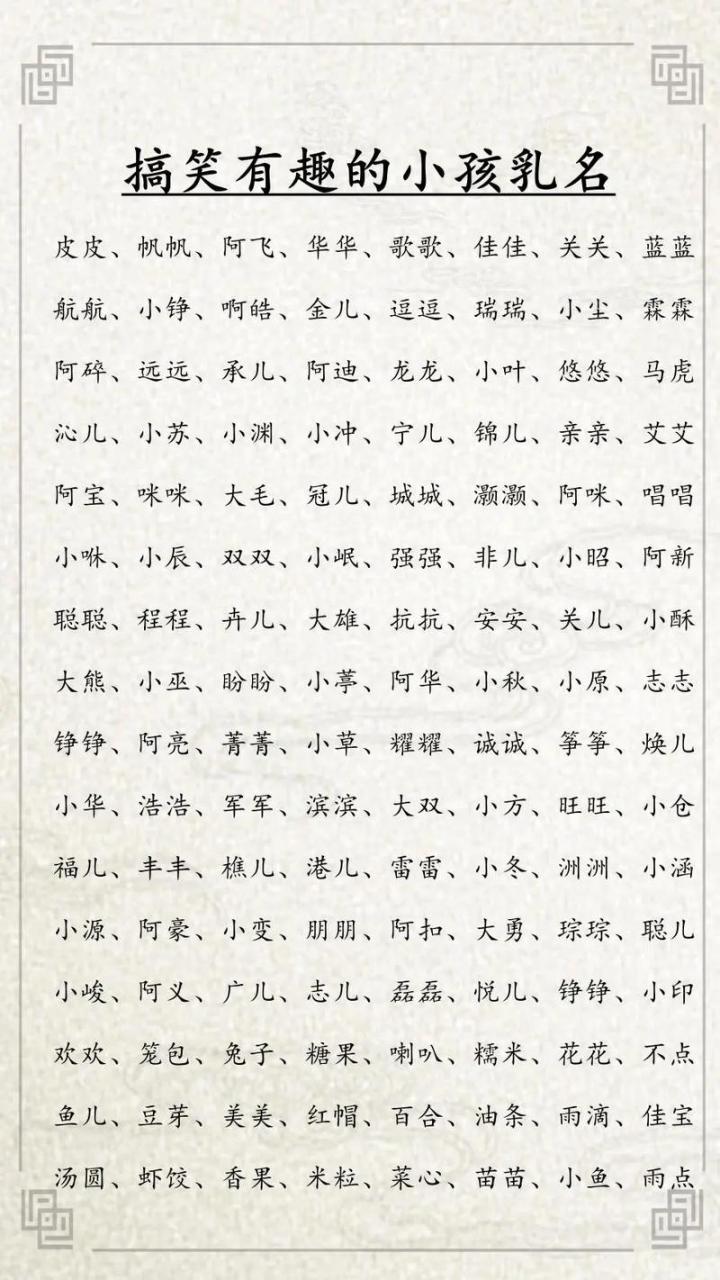 搞笑有趣的小孩乳名
皮皮、帆帆、阿飞、华华、歌歌、佳佳、关关、蓝蓝
航航、小铮、啊皓、金儿、逗逗、瑞瑞、小尘、霖霖
阿碎、远远、承儿、阿迪、龙龙、小叶、悠悠、马虎
沁儿、小苏、小渊、小冲、宁儿、锦儿、亲亲、艾艾
阿宝、咪咪、大毛、冠儿、城城、灏灏、阿咪、唱唱
小咻、小辰、双双、小岷、强强、非儿、小昭、阿新
聪聪、程程、卉儿、大雄、抗抗、安安、关儿、小酥
大熊、小巫、盼盼、小葶、阿华、小秋、小原、志志
铮铮、阿亮、菁菁、小草、耀耀、诚诚、筝筝、焕儿
小华、浩浩、军军、滨滨、大双、小方、旺旺、小仓
福儿、丰丰、樵儿、港儿、雷雷、小冬、洲洲、小涵
小源、阿豪、小变、朋朋、阿扣、大勇、琮琮、聪儿
小峻、阿义、广儿、志儿、磊磊、悦儿、铮铮、小印
欢欢、笼包、兔子、糖果、喇叭、糯米、花花、不点
鱼儿、豆芽、美美、红帽、百合、油条、雨滴、佳宝
汤圆、虾饺、香果、米粒、菜心、苗苗、小鱼、雨点